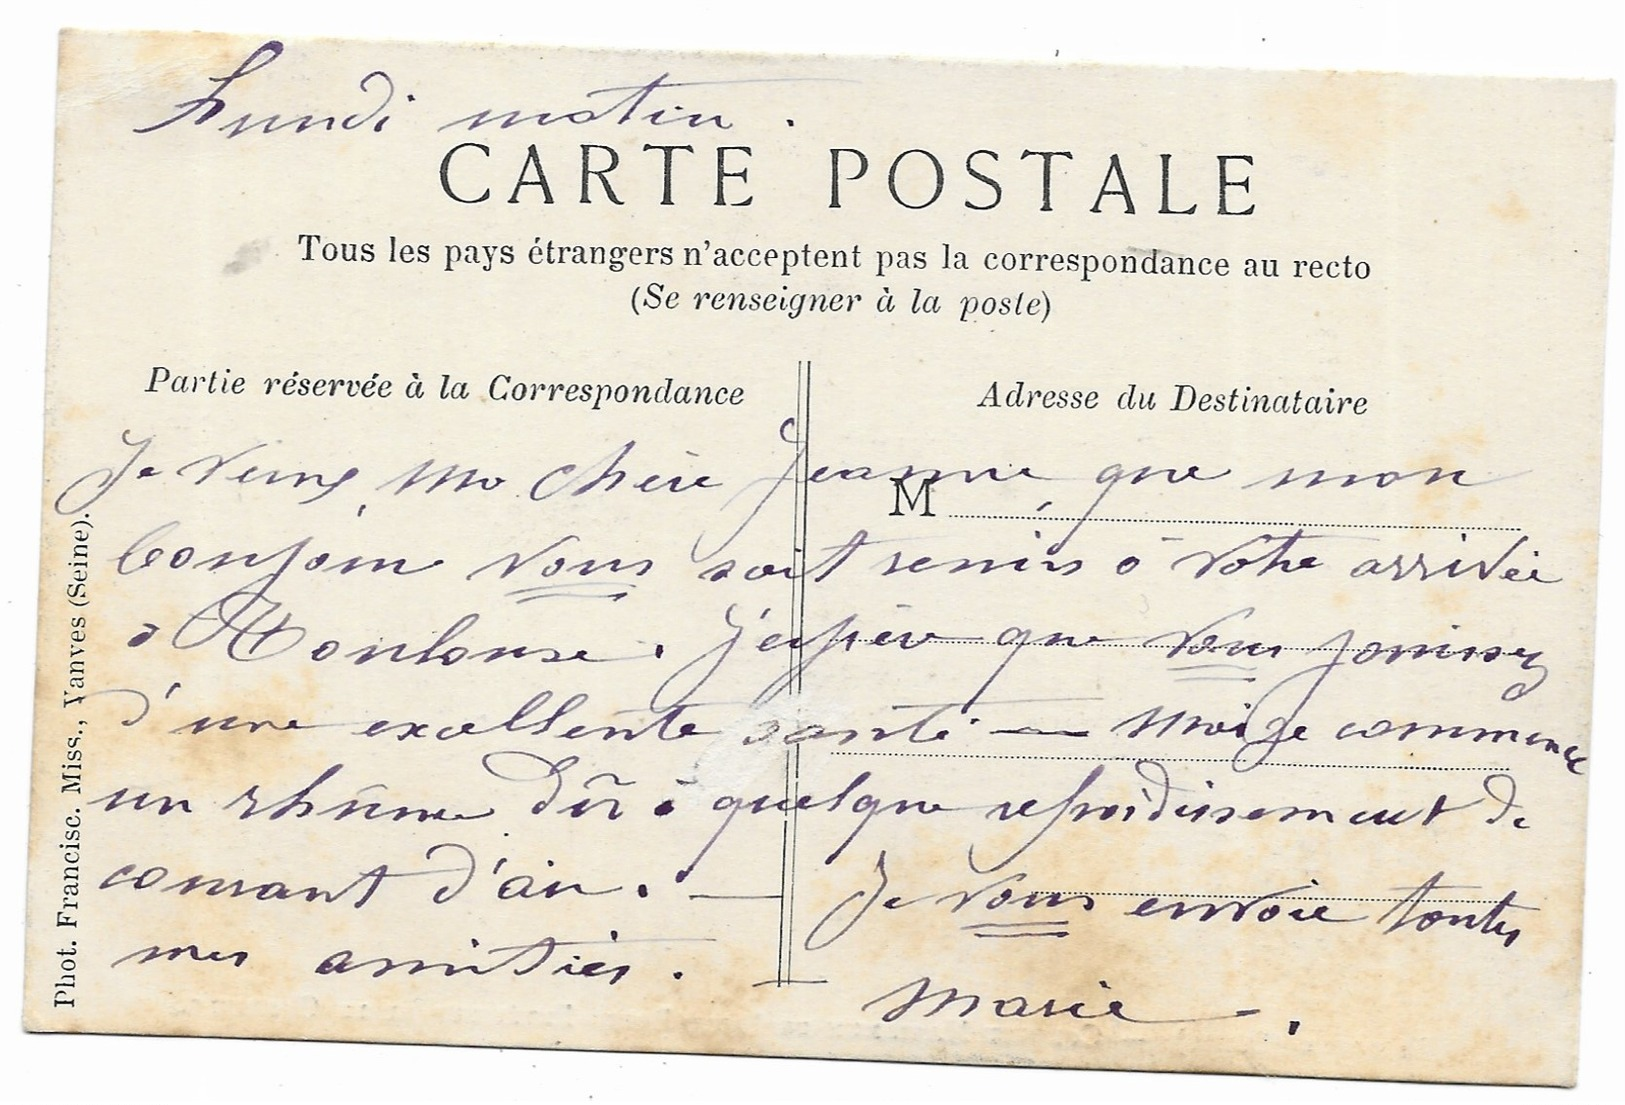 Lundi matin.
CARTE POSTALE
Tous les pays étrangers n'acceptent pas la correspondance au recto
(Se renseigner à la poste)
Partie réservée à la Correspondance
Adresse du Destinataire
M
Je veux, ma chère Jeanne que mon
bonjour vous soit remis à votre arrivée
à Toulouse. J'espère que vous jouissez
d'une excellente santé — Moi je commence
un rhûme dû à quelque refroidissement de
courant d'air. — Je vous envoie toutes
mes amitiés. —
Marie.
Phot. Francisc. Miss., Vanves (Seine).